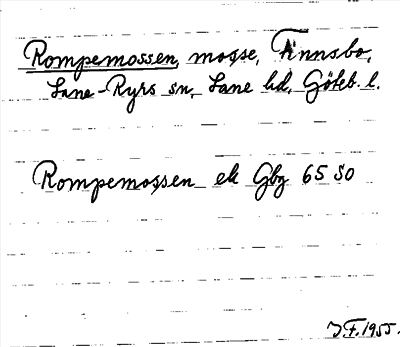 Rompemossen, mosse, Finnsbo,
Lane-Ryrs sn, Lane hd, Göteb. l.
Rompemossen ek Gbg 65 SO
J F. 1955.